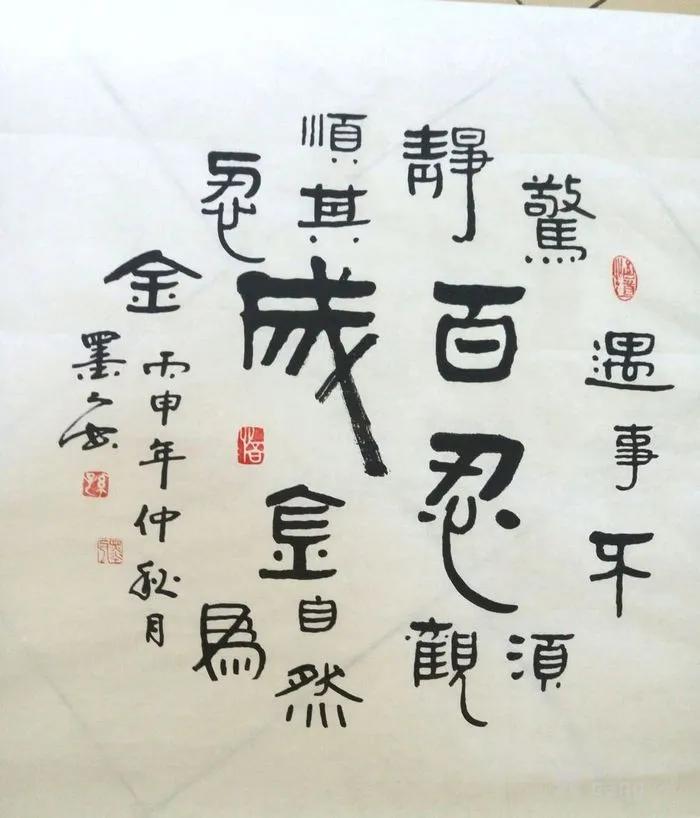 百忍
成金
遇事不
驚須
靜觀
順其自然
忍為
金
丙申年仲秋月
墨